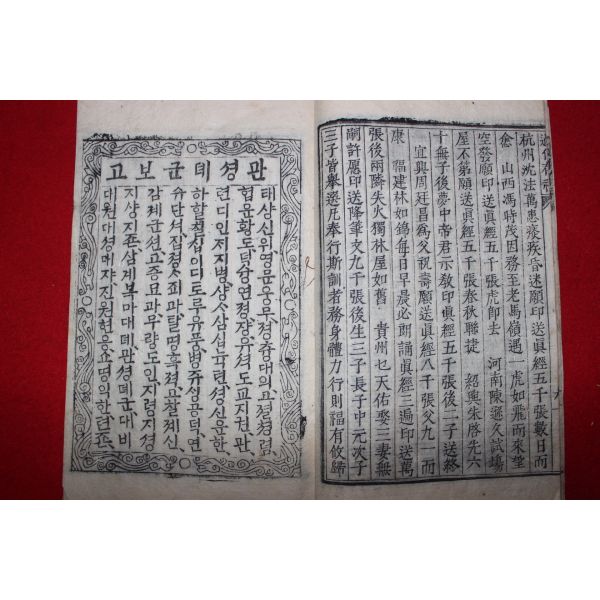 杭州沈法萬患痰疾昏迷願印送眞經五千張數日而
愈 山西馮時茂因務至老馬嶺遇一虎如飛而來望
空發願印送眞經五千張虎卽去 河南陳遜久試場
屋不第願送眞經五千張春秋聯捷 紹興朱啓先六
十無子後夢中帝君示敎印眞經五千張後二子送終
宜興周廷昌爲父祝壽願送眞經八千張父九一而
康 福建林如鶴每日早晨必朗誦眞經三遍印送萬
張後兩隣失火獨林屋如舊 貴州乜天佑娶三妻無
嗣許愿印送降筆文九千張後生三子長子中元次子
三子皆擧遂凡奉行斯訓者務身體力行則福有攸歸
관셩뎨군보고
태샹신위,영문응무,졍츙대의,고졀쳥렴,
협운황도,덕슝연졍,쟝유셕도교지권,관
련디인,져지병,샹삼십뉵텬,셩신운한,
하할칠십이디,토루유풍,병쥬싱공덕,연
슈,단셔집졍,죄과,탈명흑젹,고찰졔신
감졔군션,고증묘과,무량도인,지령지셩
지샹지존,삼계복마대뎨,관셩뎨군,대비
대원대셩대,진원현응쇼명익한텬존,